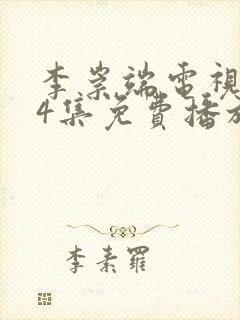 李崇端電視
4集免費播放
李素羅